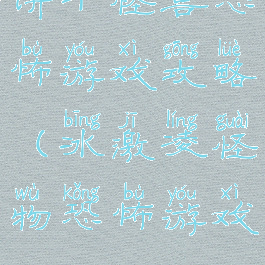 bù yóu xì gōng lüè
怖游戏攻略
bīng jī líng guài
（冰激凌怪
wù kǒng bù yóu xì
物恐怖游戏